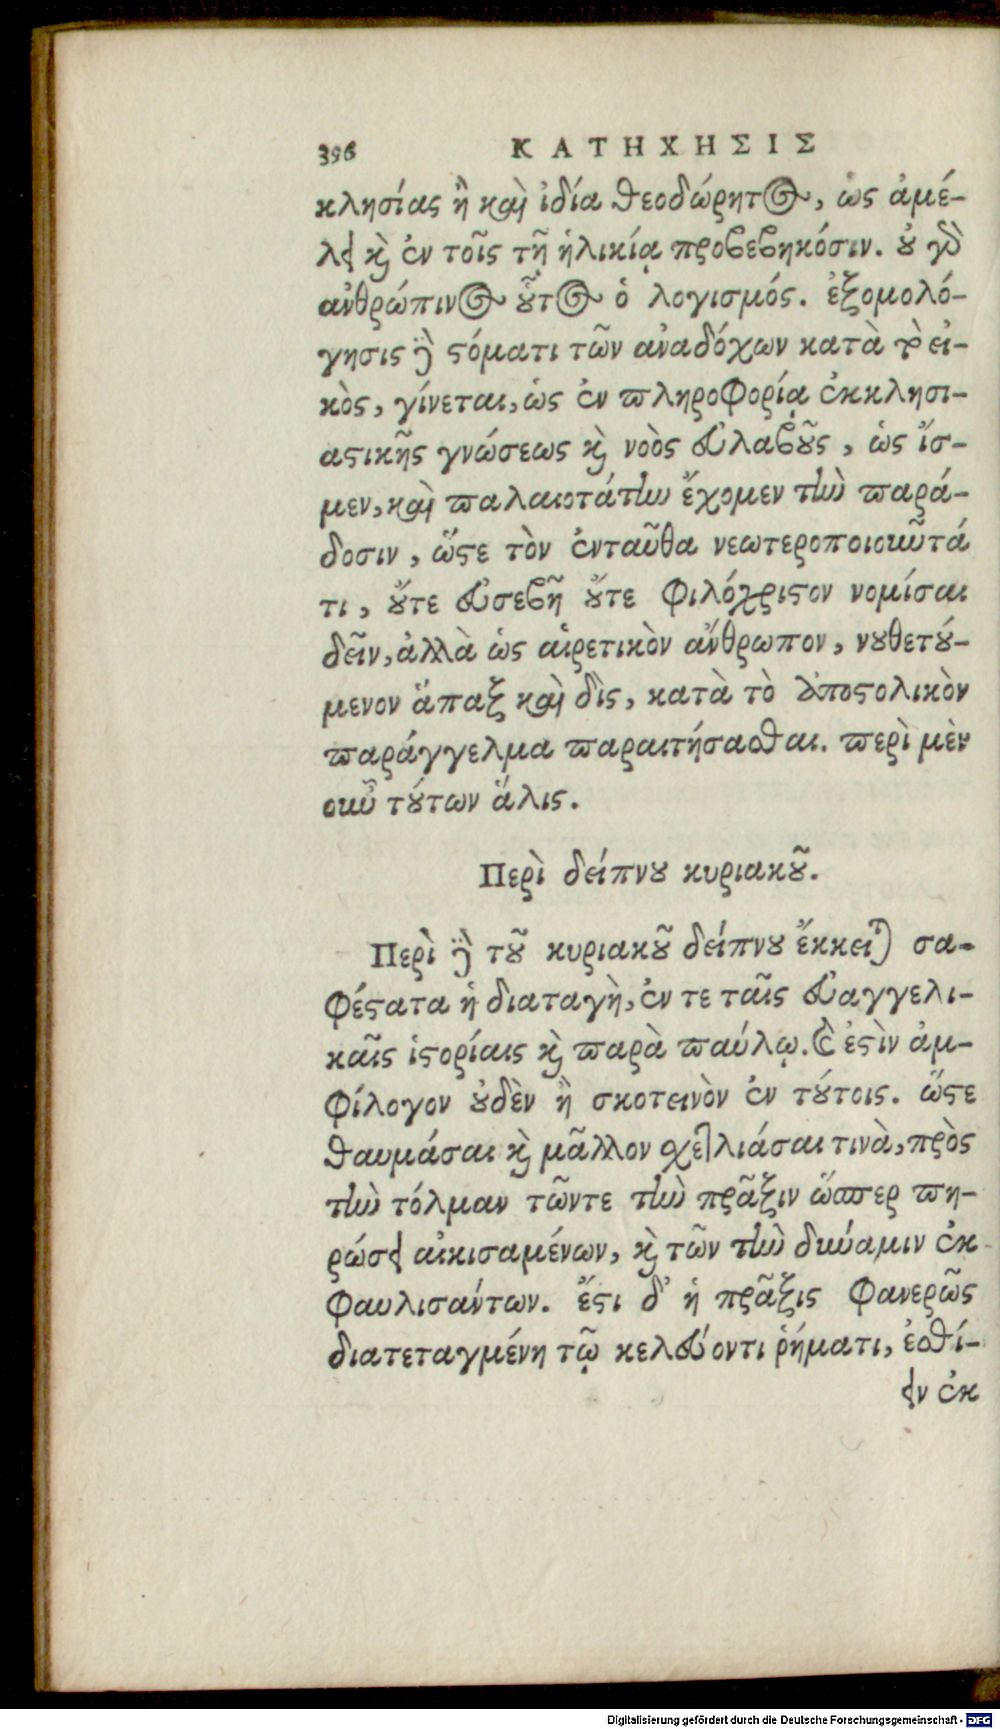 396 ΚΑΤΗΧΗΣΙΣ
κλησίας ἢ καὶ ἰδία θεοδώρητος, ὡς ἀμέ-
λει καὶ ἐν τοῖς τῇ ἡλικίᾳ προβεβηκόσιν. οὐ γὰρ
ἀνθρώπινος οὗτος ὁ λογισμός. ἐξομολό-
γησις δὲ στόματι τῶν ἀναδόχων κατὰ τὸ εἰ-
κὸς, γίνεται, ὡς ἐν πληροφορίᾳ ἐκκλησι-
αστικῆς γνώσεως καὶ νοὸς εὐλαβοῦς, ὡς ἴσ-
μεν, καὶ παλαιοτάτην ἔχομεν τὴν παρά-
δοσιν, ὥστε τὸν ἐνταῦθα νεωτεροποιοῦντά
τι, οὔτε εὐσεβῆ οὔτε φιλόχριστον νομίσαι
δεῖν, ἀλλὰ ὡς αἱρετικὸν ἄνθρωπον, νουθετού-
μενον ἅπαξ καὶ δὶς, κατὰ τὸ ἀποστολικὸν
παράγγελμα παραιτήσασθαι. περὶ μὲν
οὖν τούτων ἅλις.
Περὶ δείπνου κυριακοῦ.
Περὶ δὲ τοῦ κυριακοῦ δείπνου ἔκκειται σα-
φέστατα ἡ διαταγὴ, ἔν τε ταῖς εὐαγγελι-
καῖς ἱστορίαις καὶ παρὰ παύλῳ. καὶ ἐστὶν ἀμ-
φίλογον οὐδὲν ἢ σκοτεινὸν ἐν τούτοις. ὥστε
θαυμάσαι καὶ μᾶλλον σχετλιάσαι τινὰ, πρὸς
τὴν τόλμαν τῶντε τὴν πρᾶξιν ὥσπερ πη-
ρώσει αἰκισαμένων, καὶ τῶν τὴν δύναμιν ἐκ
φαυλισάντων. ἔστι δ' ἡ πρᾶξις φανερῶς
διατεταγμένη τῷ κελεύοντι ῥήματι, ἐσθί-
ειν ἐκ
Digitalisierung gefördert durch die Deutsche Forschungsgemeinschaft - DFG